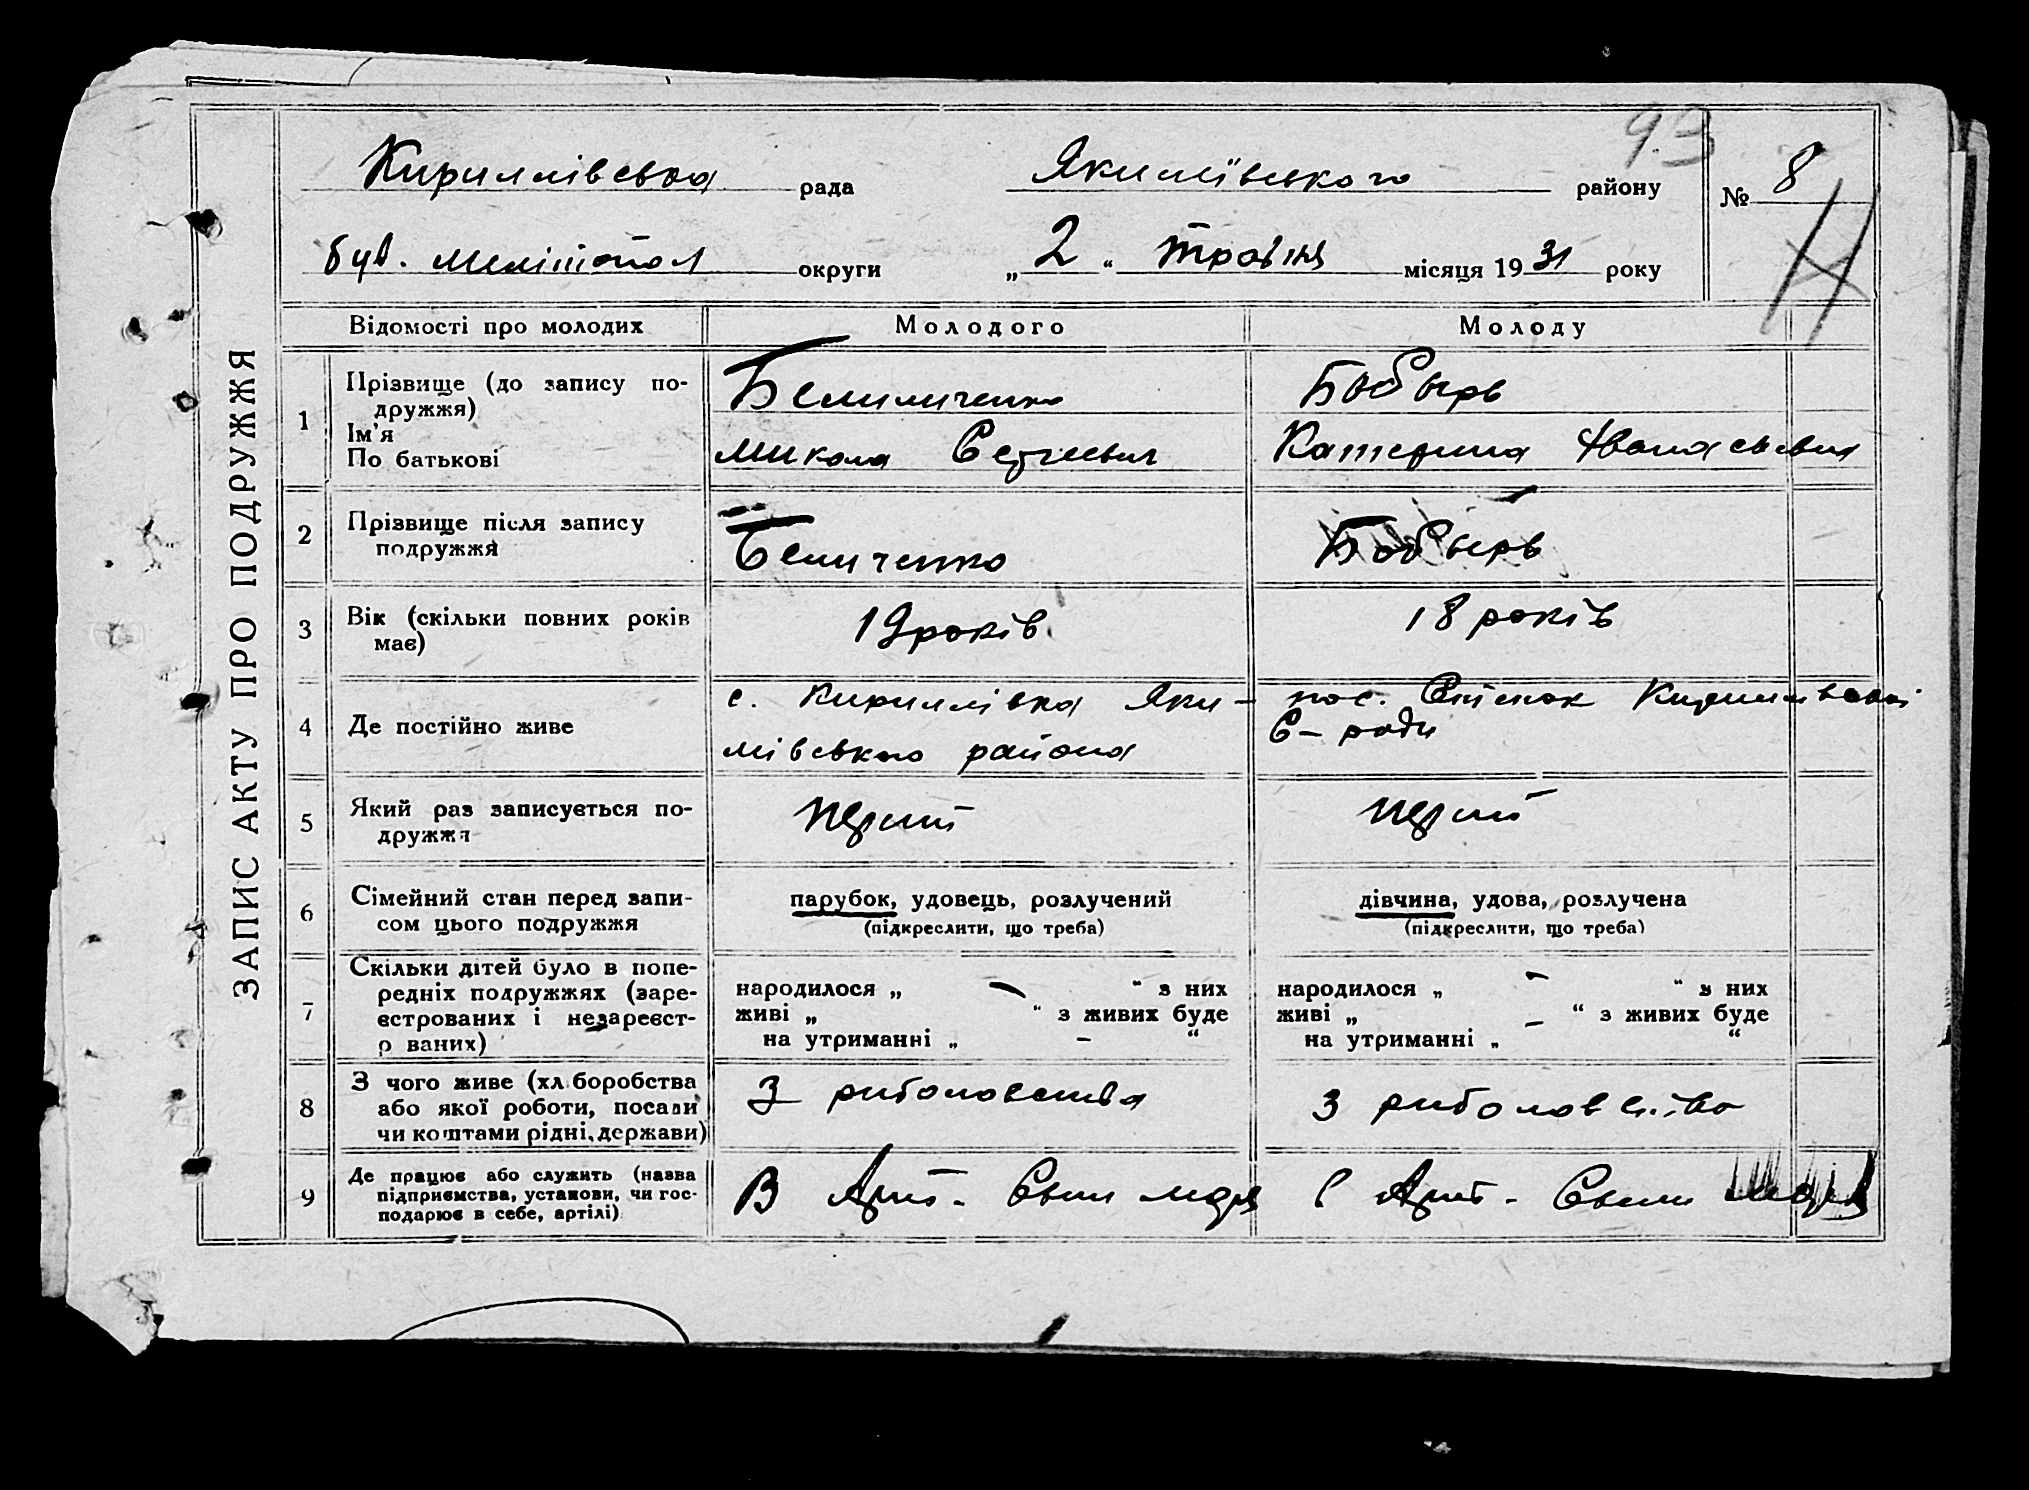 93
Кириллівська рада Якимівського району № 8
був. Мелітопол округи „ 2 “ травня місяця 19 31 року
ЗАПИС АКТУ ПРО ПОДРУЖЖЯ
Відомості про молодих Молодого Молоду
1 Прізвище (до запису по-
дружжя)
Ім'я
По батькові
Бобырь
Микола Катерина
2 Прізвище після запису
подружжя
Беличенко Бобырь
3 Вік (скільки повних років
має)
19 років 18 років
4 Де постійно живе
с. Кириллівка Яки-
мівського района
пос. Кириллівської
С-ради
5 Який раз записується по-
дружжя
перший перший
6 Сімейний стан перед запи-
сом цього подружжя
парубок, удовець, розлучений
(підкреслити, що треба)
дівчина, удова, розлучена
(підкреслити, що треба)
7 Скільки дітей було в попе-
редніх подружжях (заре-
єстрованих і незареєст-
р ваних)
народилося „ — “ з них
живі „ “ з живих буде
на утриманні „ — “
народилося „ — “ з них
живі „ — “ з живих буде
на утриманні „ “
8 З чого живе (хл боробства
або якої роботи, посади
чи коштами рідні, держави)
З риболовства З риболовства
9 Де працює або служить (назва
підприємства, установи, чи гос-
подарює в себе, артілі)
В Арт. моря
Арт. моря